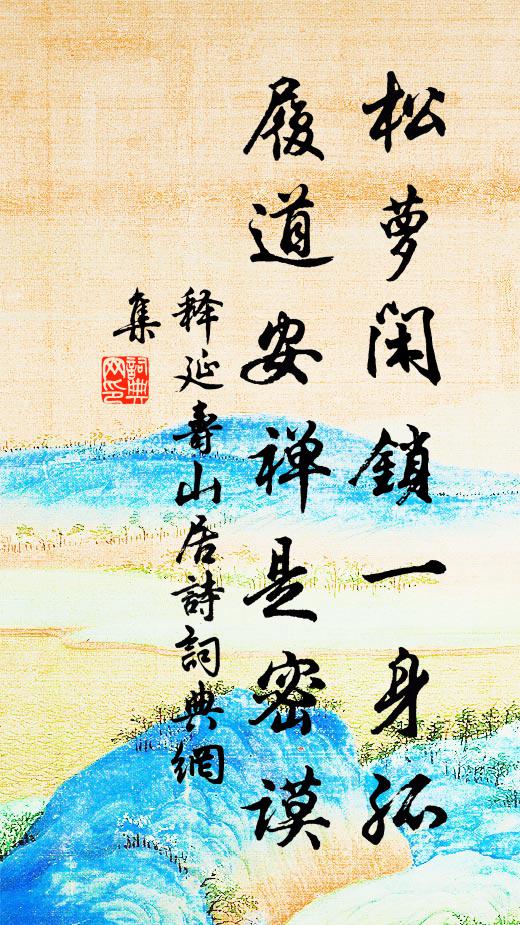 松萝闲鎖一身孤
履道安禅是密谟
释延壽山居詩詞典網
集
詞典
网印